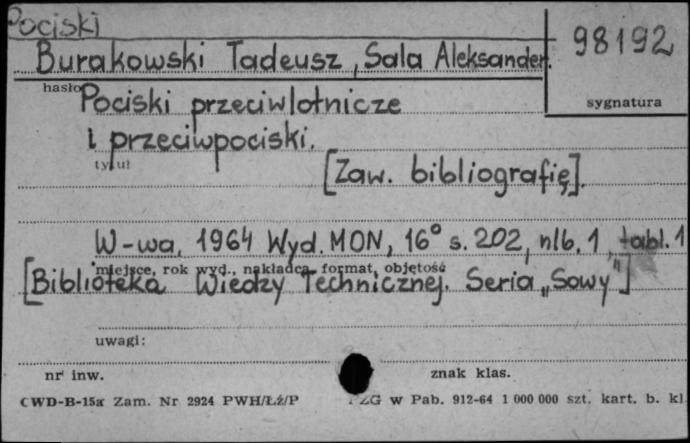 Pociski
Burakowski Tadeusz, Sala Aleksander.
98192
hasło
sygnatura
Pociski przeciwlotnicze
i przeciwpociski.
tytuł
[Zaw. bibliografię].
W-wa, 1964 Wyd. MON, 16° s. 202, nlb. 1, tabl. 1
miejsce, rok wyd., nakładca, format, objętość
[Biblioteka Wiedzy Technicznej. Seria „Sowy"]
uwagi:
nr inw.
znak klas.
CWD-B-15a Zam. Nr 2924 PWH/Łź/P
PZG w Pab. 912-64 1 000 000 szt. kart. b. kl